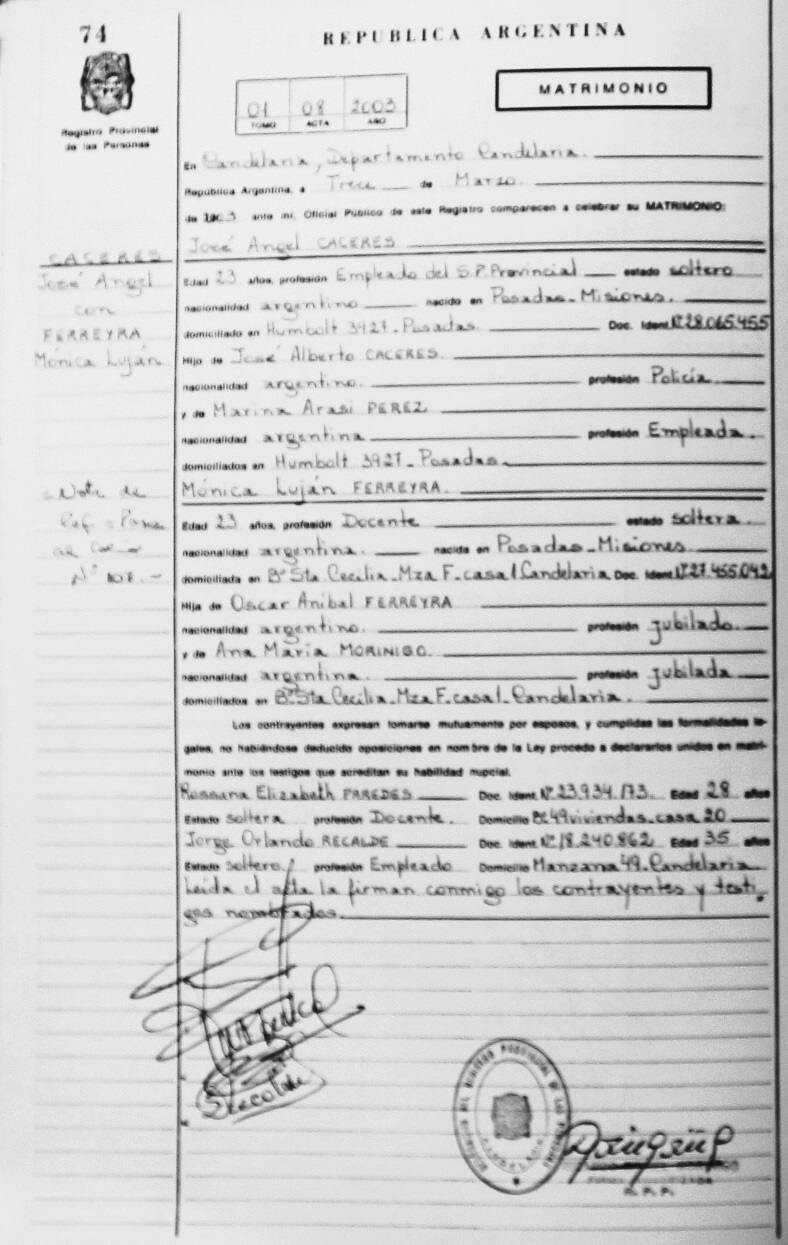 74
REPUBLICA ARGENTINA
MATRIMONIO
01 08 2003
TOMO ACTA AÑO
Registro Provincial
de las Personas
En Candelaria, Departamento Candelaria.
República Argentina, a Trece de Marzo.
de ante mi, Oficial Público de este Registro comparecen a celebrar su MATRIMONIO:
José Angel CACERES
CACERES
José Angel
con
FERREYRA
Mónica Luján
Edad 23 años, profesión Empleado del S.P. Provincial estado soltero
nacionalidad argentino nacido en Posadas-Misiones.
domiciliado en Humbolt 3927-Posadas Doc. Ident. Nº 28.065.455
Hijo de José Alberto CACERES.
nacionalidad argentino. profesión Policía
y de Marina Arasi PEREZ
nacionalidad argentina profesión Empleada.
domiciliados en Humbolt 3927-Posadas
Mónica Luján FERREYRA.
Nota de
Nº
Edad 23 años, profesión Docente estado soltera.
nacionalidad argentina. nacida en Posadas-Misiones
domiciliada en Bº Sta Cecilia-Mza F-casa 1 Candelaria Doc. Ident. Nº 27.455.042
Hija de Oscar Aníbal FERREYRA
nacionalidad argentino. profesión jubilado.
y de Ana María MORINIGO.
nacionalidad argentina. profesión jubilada
domiciliados en Bº Sta Cecilia-Mza F-casa 1-Candelaria.
Los contrayentes expresan tomarse mutuamente por esposos, y cumplidas las formalidades le-
gales, no habiéndose deducido oposiciones en nombre de la Ley procedo a declararlos unidos en matri-
monio ante los testigos que acreditan su habilidad nupcial.
Rossana Elizabeth PAREDES Doc. Ident. Nº 23.934.173. Edad 28 años
Estado soltera profesión Docente. Domicilio Bº 49 viviendas-casa 20
Jorge Orlando RECALDE Doc. Ident. Nº 18.240.862 Edad 35 años
Estado soltero profesión Empleado Domicilio Manzana 49-Candelaria
Leída el acta la firman conmigo los contrayentes y testi
gos nombrados.
REGISTRO PROVINCIAL DE LAS PERSONAS
CANDELARIA
R. P. P.